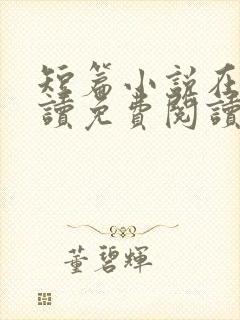 短篇小說在
讀免費閱讀
董碧輝